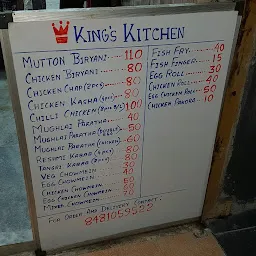 KING'S KITCHEN
MUTTON BIRYANI 110
CHICKEN BIRYANI 80
CHICKEN CHAP (2PCS) 80
CHICKEN KASHA 80
CHILLI CHICKEN 100
MUGHLAI PARATHA 40
MUGHLAI PARATHA (DOUBLE) 50
MUGHLAI PARATHA (CHICKEN) 60
RESHMI KABAB 80
TANGRI KABAB 80
VEG CHOWMEIN 30
EGG CHOWMEIN 40
CHICKEN CHOWMEIN 50
EGG CHICKEN CHOWMEIN
MIXED CHOWMEIN
FISH FRY 40
FISH FINGER 15
EGG ROLL 30
CHICKEN ROLL 40
EGG CHICKEN ROLL 50
CHICKEN PAKORA
FOR ORDER AND DELIVERY CONTACT
8481059522